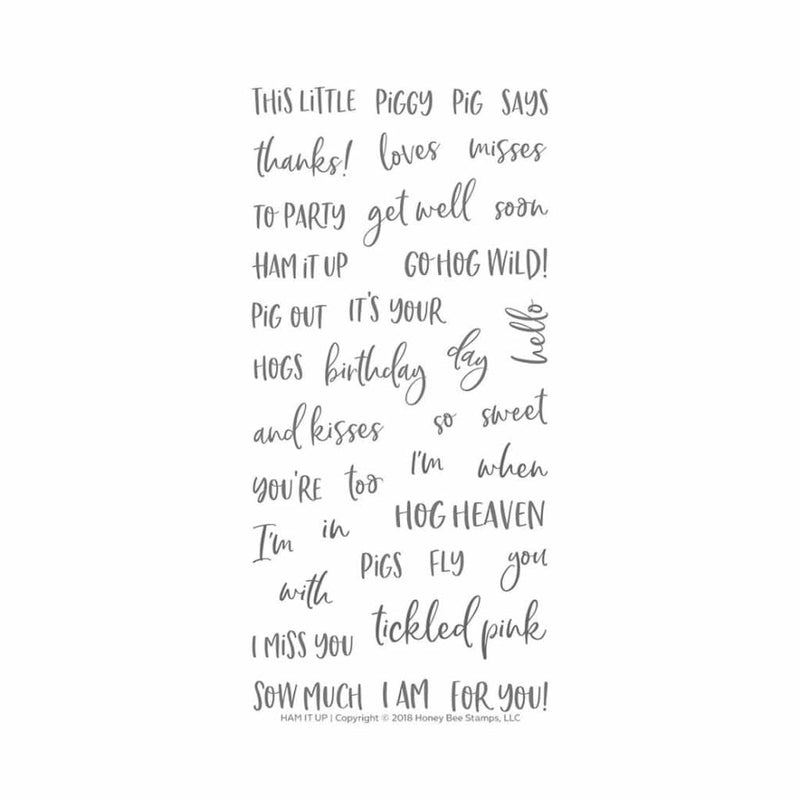 THIS LITTLE PIGGY PIG SAYS
thanks! loves misses
TO PARTY get well soon
HAM IT UP GO HOG WILD!
PIG OUT IT'S YOUR hello
HOGS birthday day
and kisses so sweet
YOU'RE too I'm when
I'm in HOG HEAVEN
with PIGS FLY you
I MISS YOU tickled pink
SOW MUCH I AM FOR YOU!
HAM IT UP | Copyright © 2018 Honey Bee Stamps, LLC